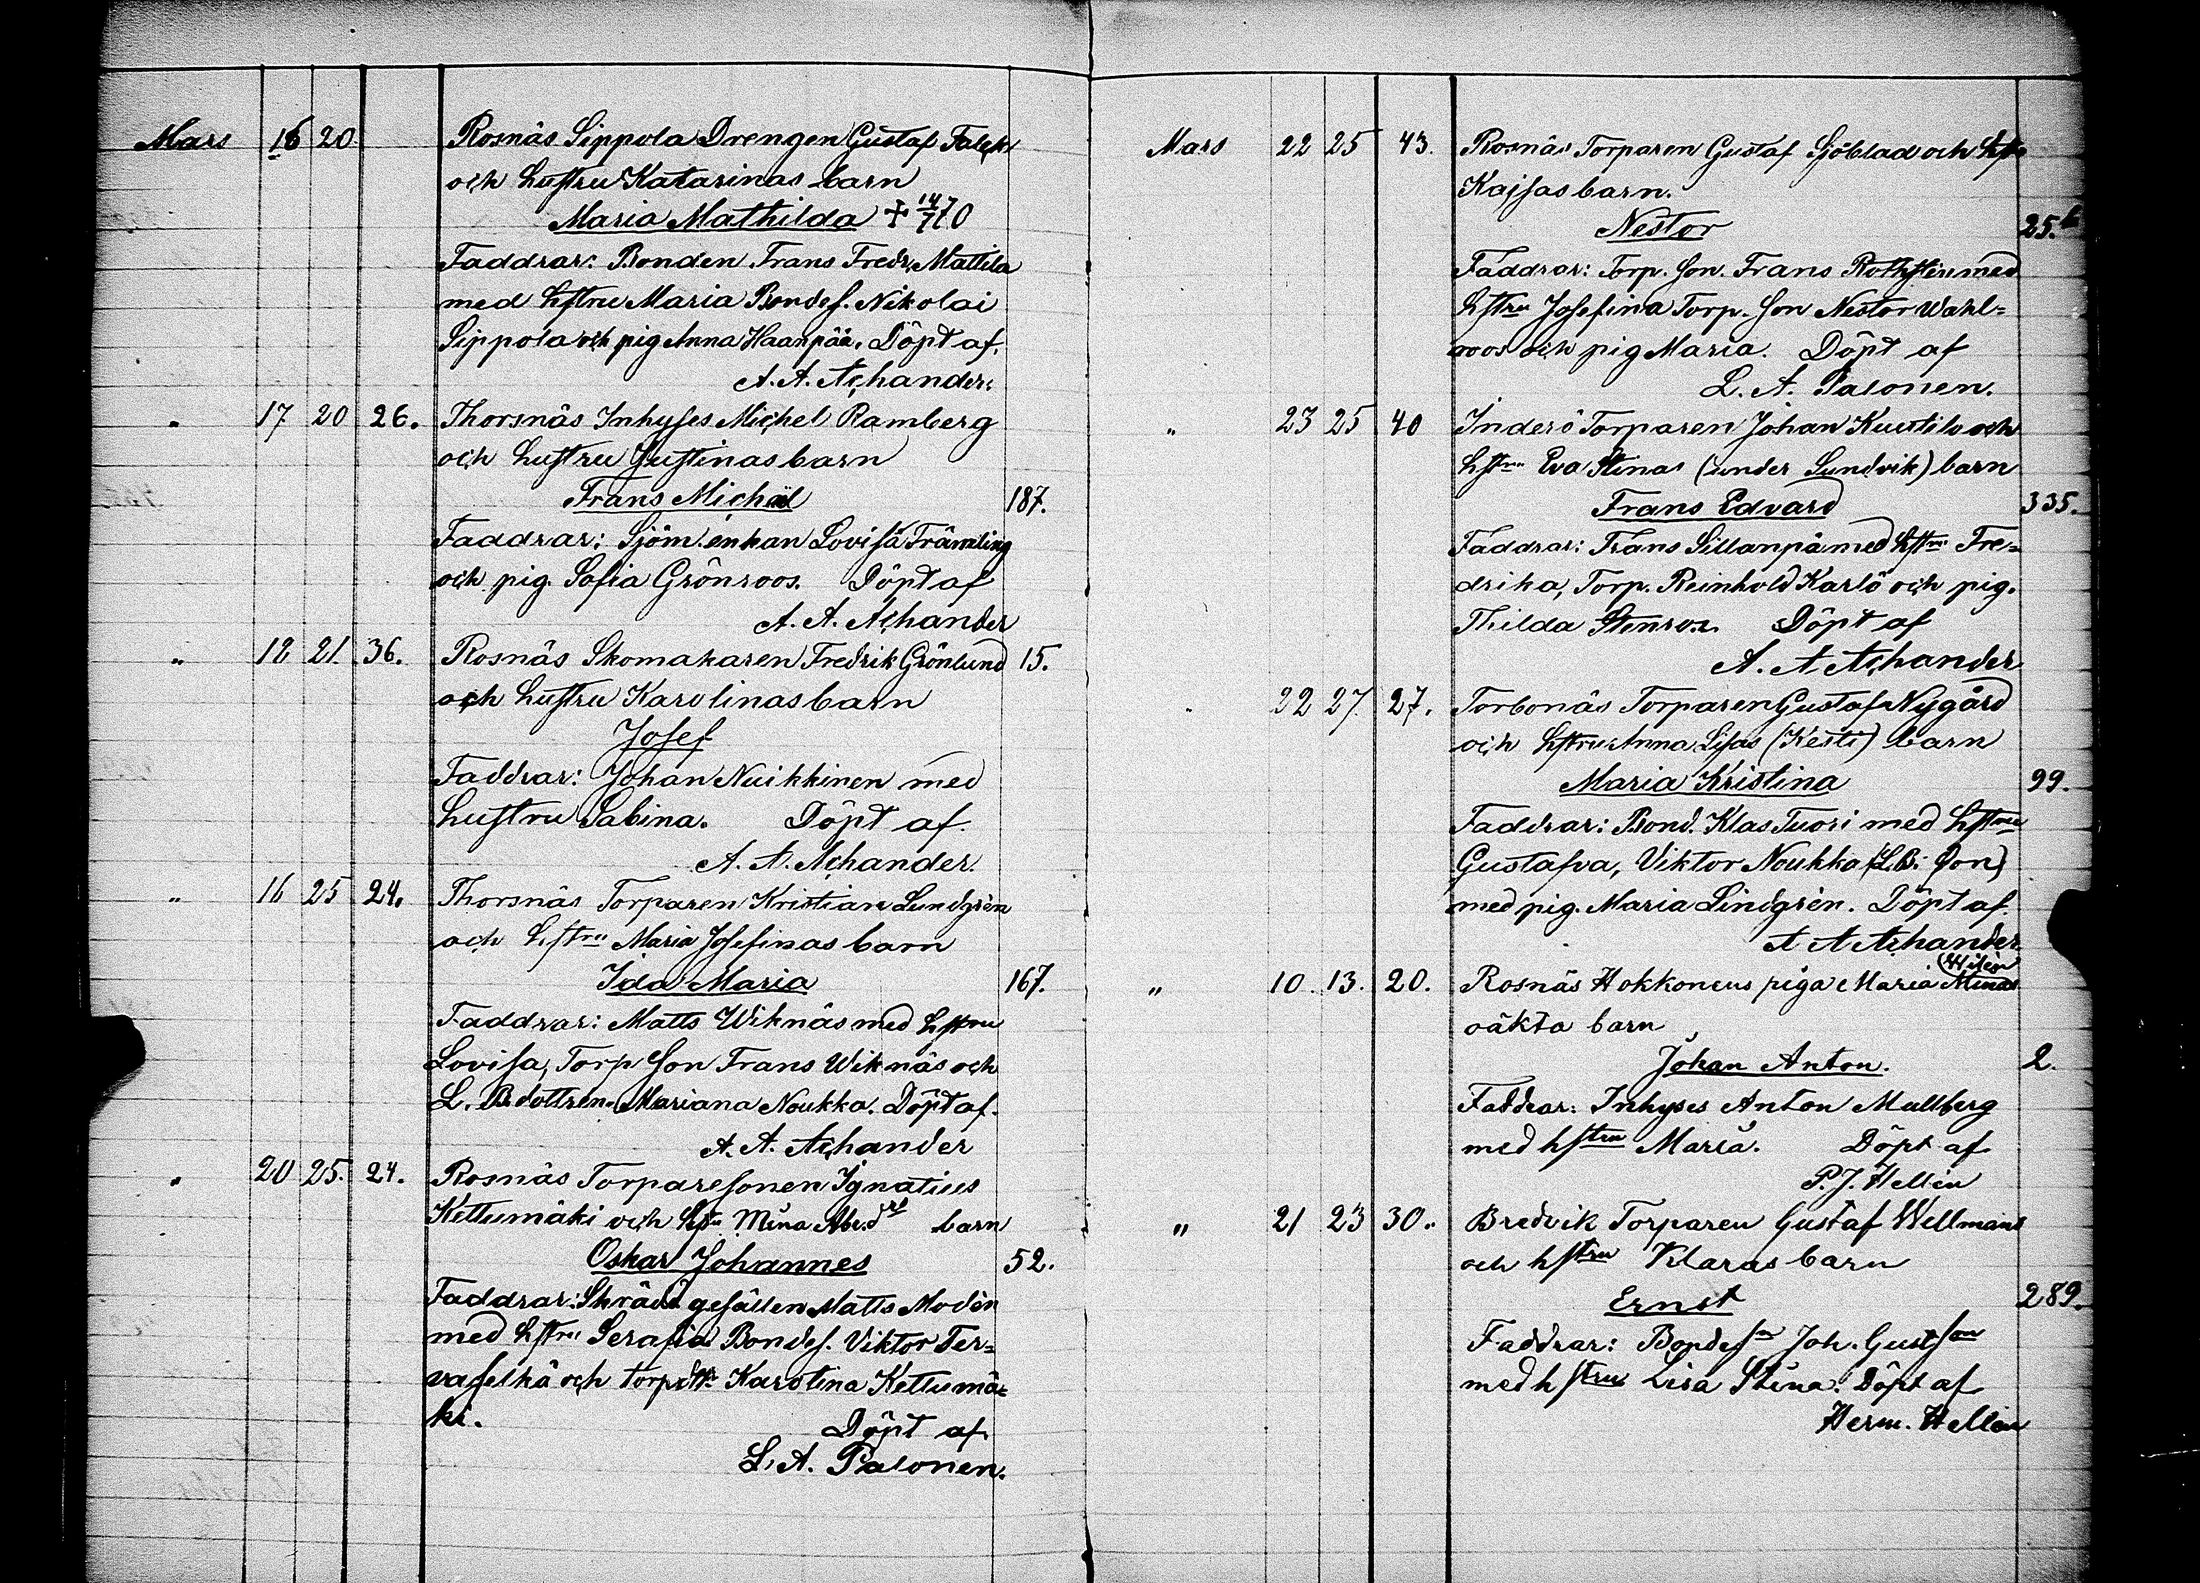 Mars 16 20 Rosnäs Sippola Drengen Gustaf Falck
och hustru Katarinas barn
Maria Mathilda + 14/7 70
Faddrar: Bonden Frans Fredr. Mattila
med hstru Maria Bondes. Nikolai
Sippola och pig Anna Haanpää. Döpt af.
A. A. Achander.
" 17 20 26. Thorsnäs Inhyses Michel Ramberg
och hustru Justinas barn
Frans Michäel 187.
Faddrar: Sjöm. enkan Lovisa Främling
och pig. Sofia Grönroos. Döpt af
A. A. Achander
" 12 21. 36. Rosnäs Skomakaren Fredrik Grönlund 15.
och hustru Karolinas barn
Josef
Faddrar: Johan Nuikkinen med
hustru Sabina. Döpt af.
A. A. Achander.
" 16 25 24. Thorsnäs Torparen Kristian Lundgrèn
och hstru Maria Josefinas barn
Ida Maria 167.
Faddrar: Matts Wiknäs med hstru
Lovisa, Torp Son Frans Wiknäs och
L. B. dottren Mariana Noukka. Döpt af.
A. A. Achander
" 20 25. 24. Rosnäs Torparesonen Ignatius
Kettumäki och hstru Mina barn
Oskar Johannes 52.
Faddrar: Skräd. gesällen Matts Modèn
med hstru Serafia Bondes. Viktor Ter-
vaselkä och torp dttr Karolina Kettumä-
ki. Döpt af.
L. A. Palonen.
Mars 22 25 43. Rosnäs Torparen Gustaf Sjöblad och hst
Kajsas barn.
Nestor 25.b
Faddrar: Torp. Son. Frans Rothsten med
hstru Josefina Torp. Son Nestor Wahl-
roos och pig Maria. Döpt af
L. A. Palonen.
" 23 25 40 Inderö Torparen Johan Kustila och
hstru Eva Stinas (under Sundvik) barn
Frans Edvard 335.
Faddrar: Frans Sillanpä med hstru Fre-
drika, Torp. Reinhold Karlö och pig.
Thilda Stenros. Döpt af
A. A. Achander
" 22 27 27. Torbonäs Torparen Gustaf Nygård
och hstru Anna Lisas (Kesti) barn
Maria Kristina 99.
Faddrar: Bond. Klas Tuori med hstru
Gustafva, Viktor Noukka (L. B. Son)
med pig. Maria Lindgrèn. Döpt af.
A A Achander.
" 10 13. 20. Rosnäs Hokkonens piga Maria Minas
oäkta barn
Johan Anton. 2.
Faddrar: Inhyses Anton Mullberg
med hstru Maria. Döpt af.
P. J. Hellèn
" 21 23 30. Bredvik Torparen Gustaf Wellmans
och hstru Klaras barn
Ernst 289.
Faddrar: Bondesn Joh. Gustson
med hstru Lisa Stina. Döpt af
Herm. Hellèn